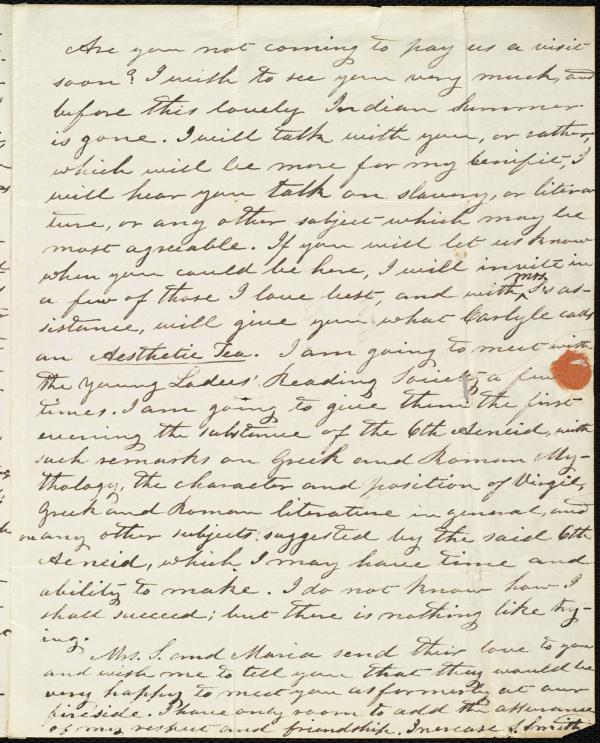 Are you not coming to pay us a visit
soon? I wish to see you very much, and
before this lovely Indian Summer
is gone. I will talk with you, or rather,
which will be more for my benifit, I
will hear you talk on slavery, or litera-
ture, or any other subject which may be
most agreeable. If you will let us know
when you could be here, I will invite in
a few of those I love best, and with Mrs. S's as-
sistance, will give you what Carlyle calls
an Aesthetic Tea. I am going to meet with
the Young Ladies' Reading Society a few
times. I am going to give them the first
evening the substance of the 6th Aeneid, with
such remarks on Greek and Roman My-
thology, the character and position of Virgil,
Greek and Roman literature in general, and
on any other subjects suggested by the said 6th
Aeneid, which I may have time and
ability to make. I do not know how I
shall succeed; but there is nothing like try-
ing.
Mrs. S. and Maria send their love to you
and wish me to tell you that they would be
very happy to meet you as formerly at our
fireside. I have only room to add the assurance
of my respect and friendship. Increase S. Smith